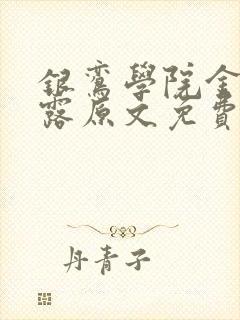 銀鸞學院金
露原文免費
丹青子